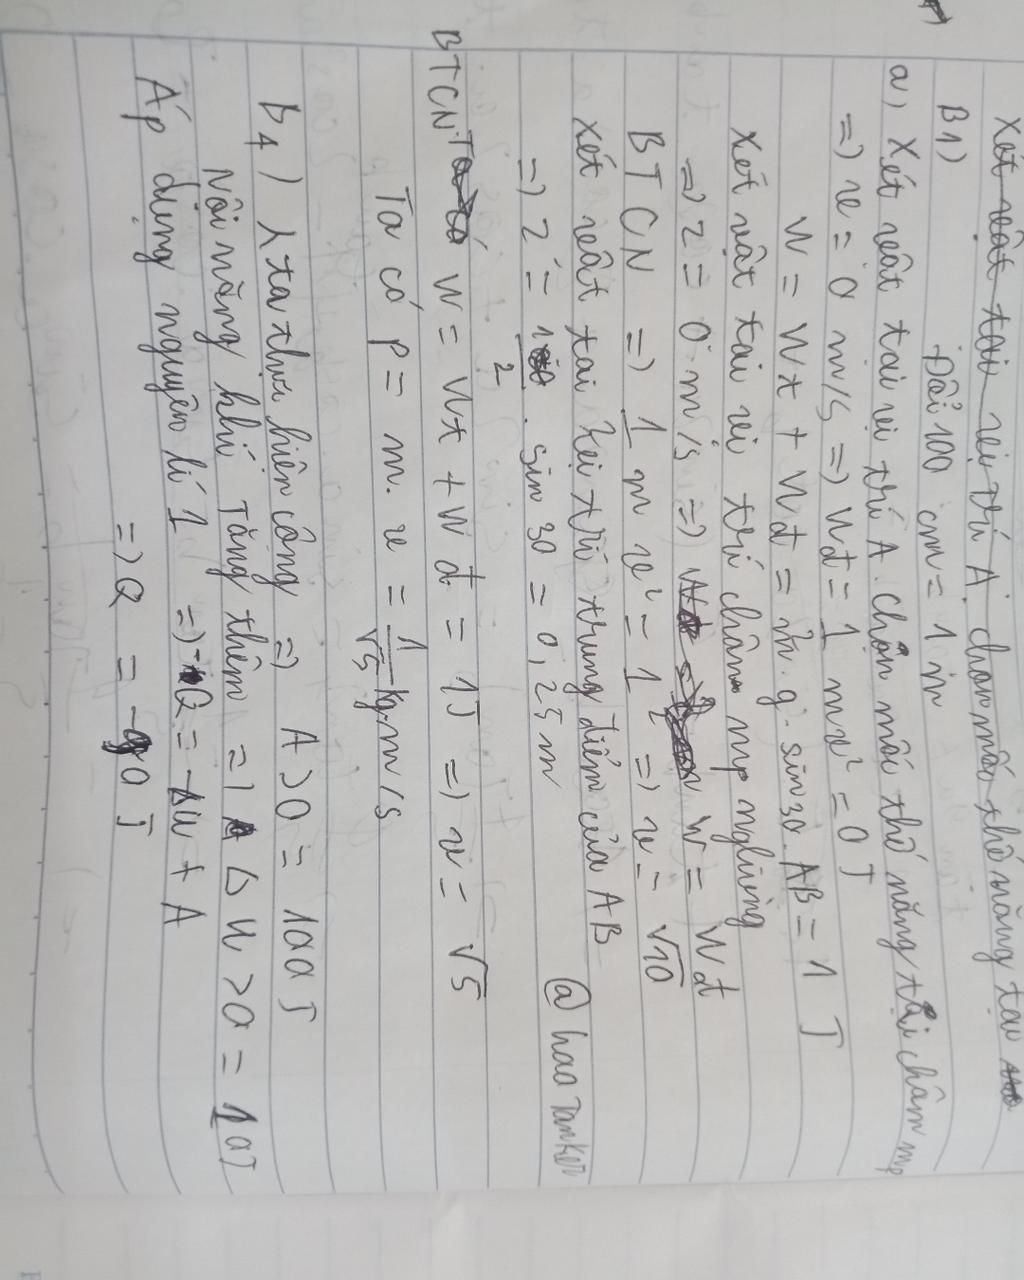 Xét vật tại vị trí A chọn mốc thế năng tại
B1) Đổi 100 cm = 1 m
a) Xét vật tại vị trí A. chọn mốc thế năng tại chân mp
=) v = 0 m/s =) Wđ = 1/2 m v² = 0 J
W = Wt + Wđ = m. g. sin 30. AB = 1 J
Xét vật tại vị trí chân mp nghiêng
=) z = 0 m/s =) W = Wđ
BTCN =) 1/2 m v² = 1 =) v = √10
Xét vật tại vị trí trung điểm của AB
=) z' = 1/2 . sin 30 = 0,25 m
@ hao Tanker
BTCN W = Wt + Wđ = 1J =) v = √5
Ta có p = m. v = 1/√5 kg.m/s
B4) λ ta thực hiện công =) A > 0 = 100 J
Nội năng khí Tăng thêm =) ΔU > 0 = 10J
Áp dụng nguyên lí 1 =) -Q = -ΔU + A
=) Q = -90 J